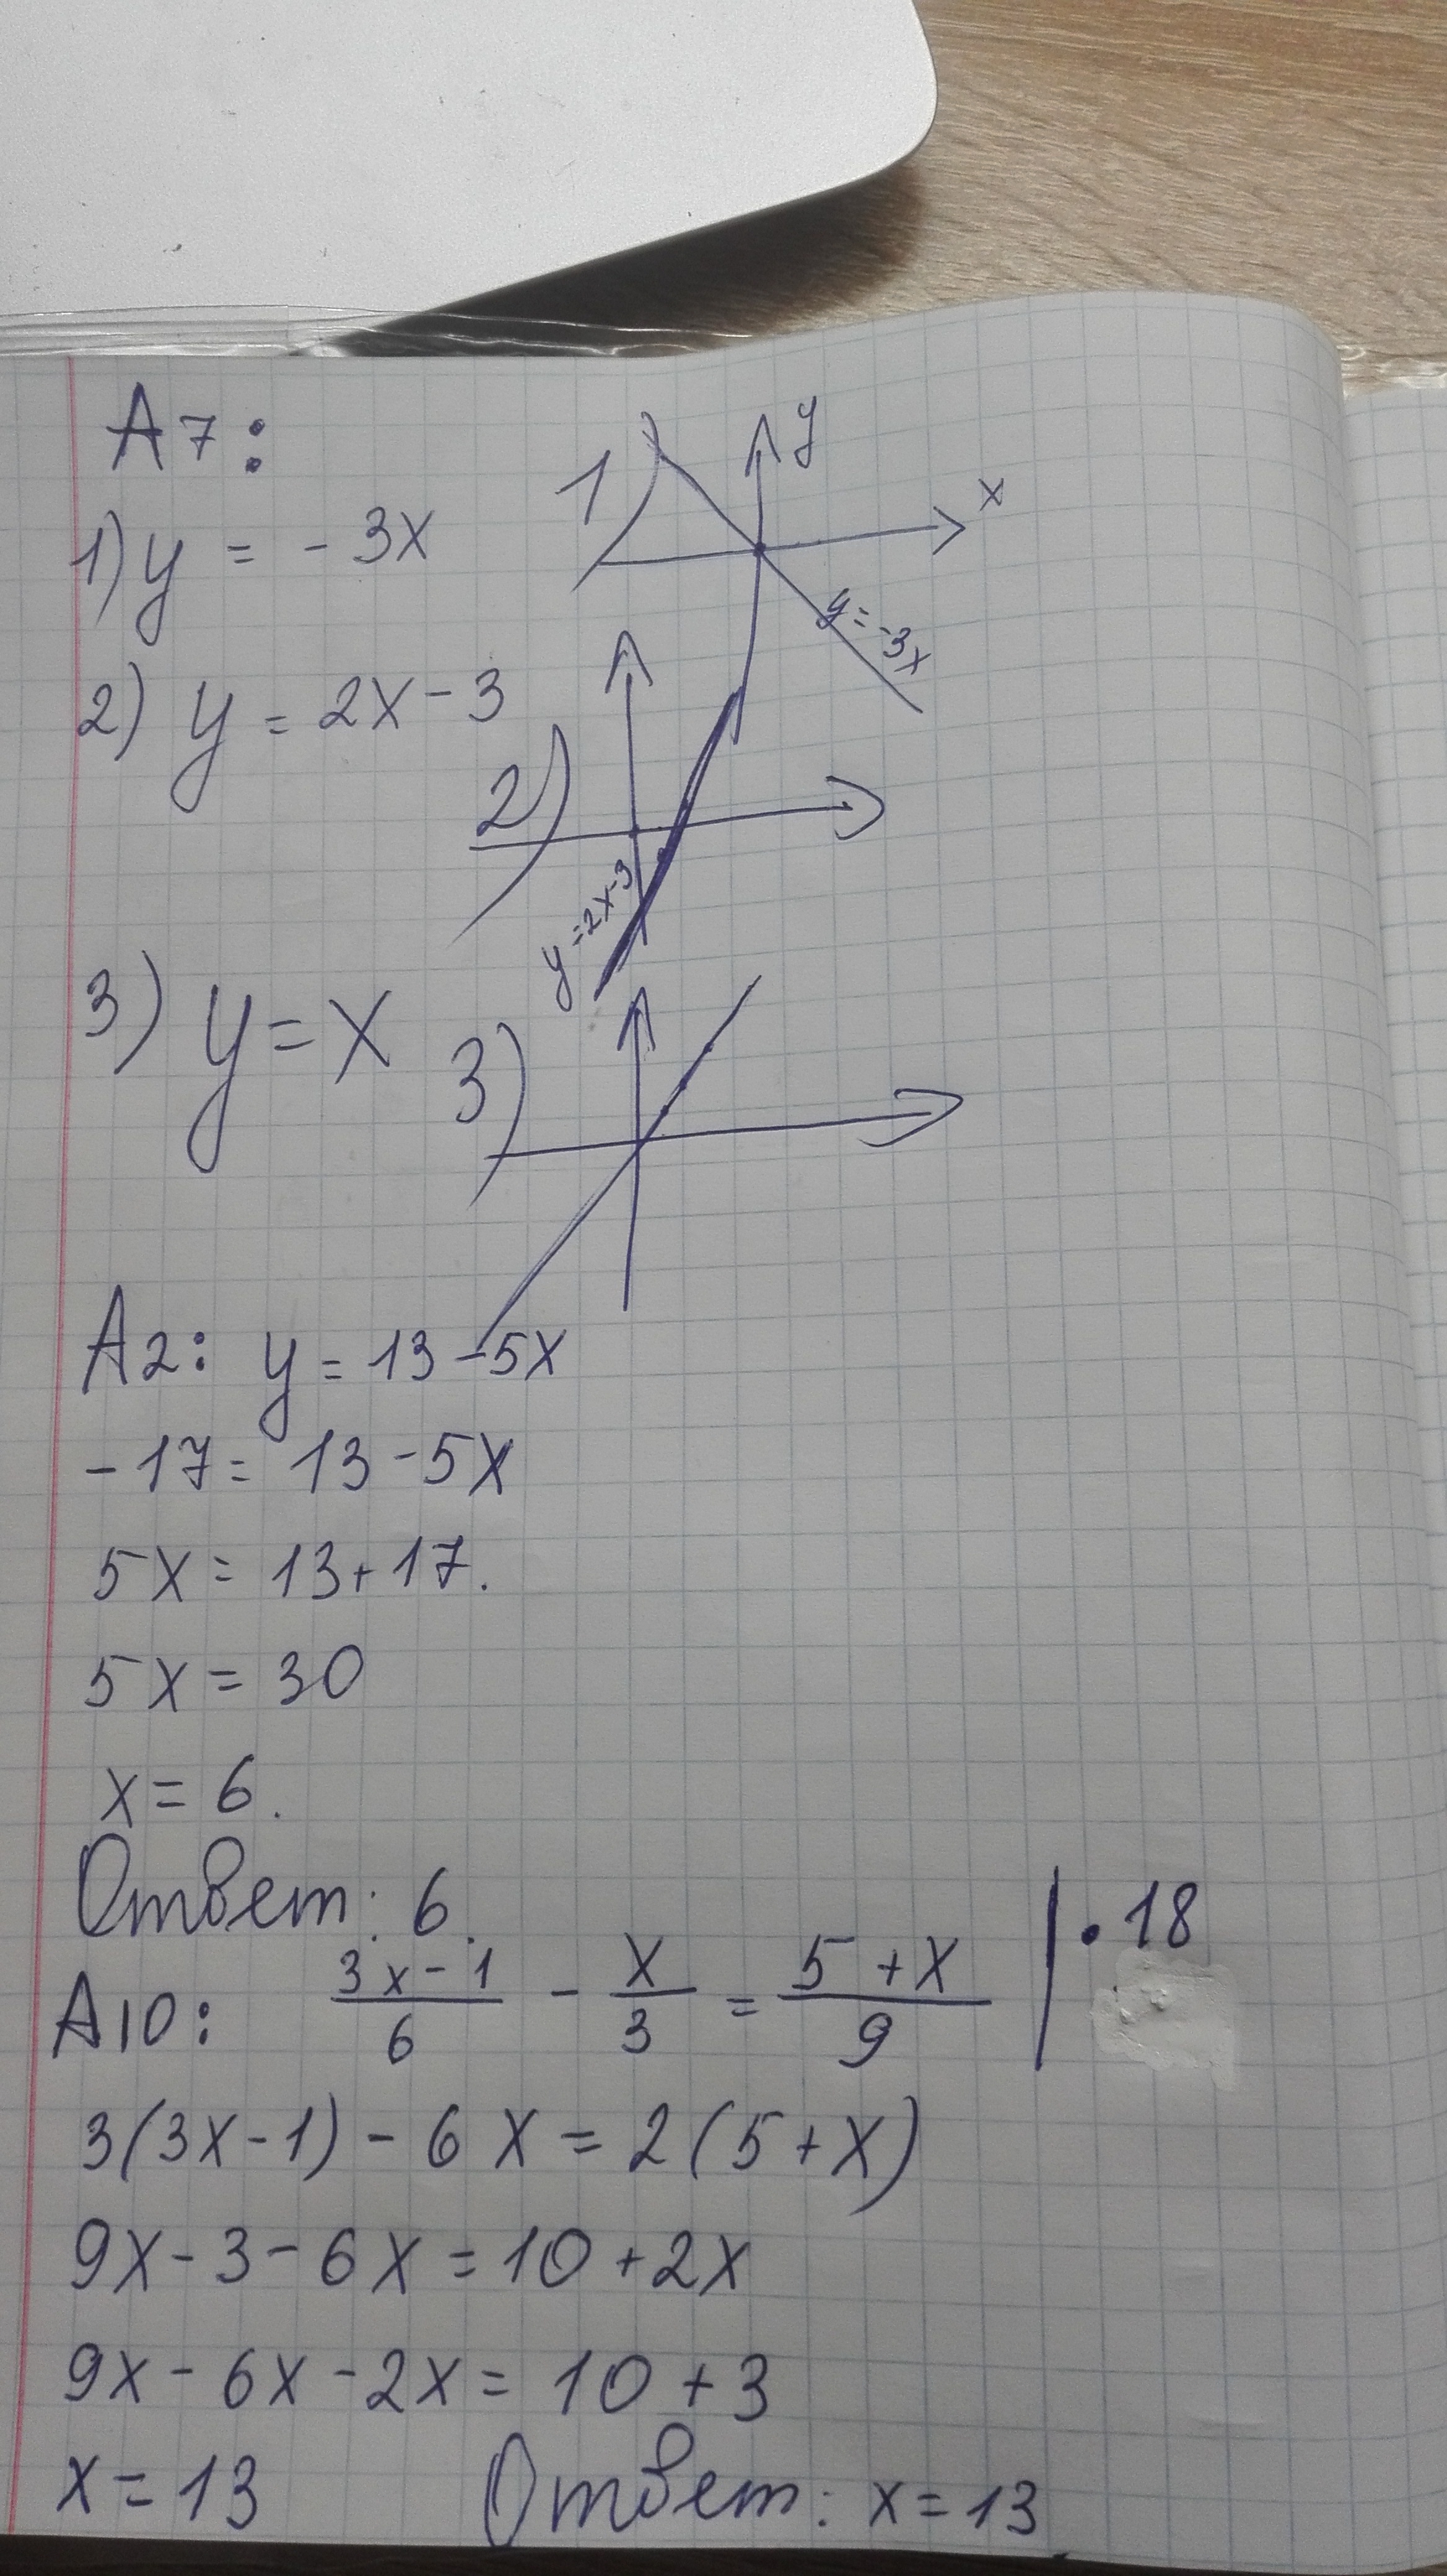 А7:
1) y = -3x
1)
y
x
y = -3x
2) y = 2x - 3
2)
y = 2x - 3
3) y = x
3)
А2: y = 13 - 5x
-17 = 13 - 5x
5x = 13 + 17.
5x = 30
x = 6.
Ответ: 6.
А10: (3x - 1)/6 - x/3 = (5 + x)/9 | · 18
3(3x - 1) - 6x = 2(5 + x)
9x - 3 - 6x = 10 + 2x
9x - 6x - 2x = 10 + 3
x = 13 Ответ: x = 13